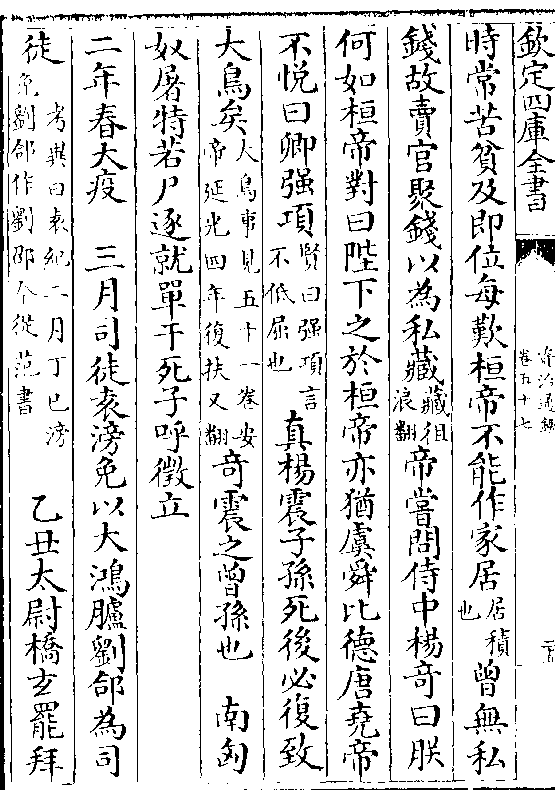 欽定四庫全書
資治通鑑
卷五十七
時常苦貧及即位每歎桓帝不能作家居居積也曾無私
錢故賣官聚錢以為私藏藏徂浪翻帝嘗問侍中楊奇曰朕
何如桓帝對曰陛下之於桓帝亦猶虞舜比德唐堯帝
不悅曰卿强項賢曰强項言不低屈也真楊震子孫死後必復致
大鳥矣大鳥事見五十一卷安帝延光四年復扶又翻奇震之曾孫也 南匈
奴屠特若尸逐就單于死子呼徵立
二年春大疫 三月司徒袁滂免以大鴻臚劉郃為司
徒考異曰袁紀二月丁巳滂免劉郃作劉邵今從范書 乙丑太尉橋玄罷拜